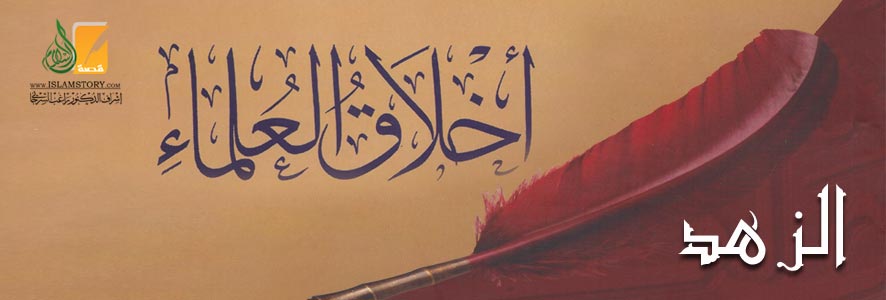 أخلاق العلماء
الزهد
قصة الإسلام
WWW.ISLAMSTORY.COM
إشراف الدكتور راغب السرجاني